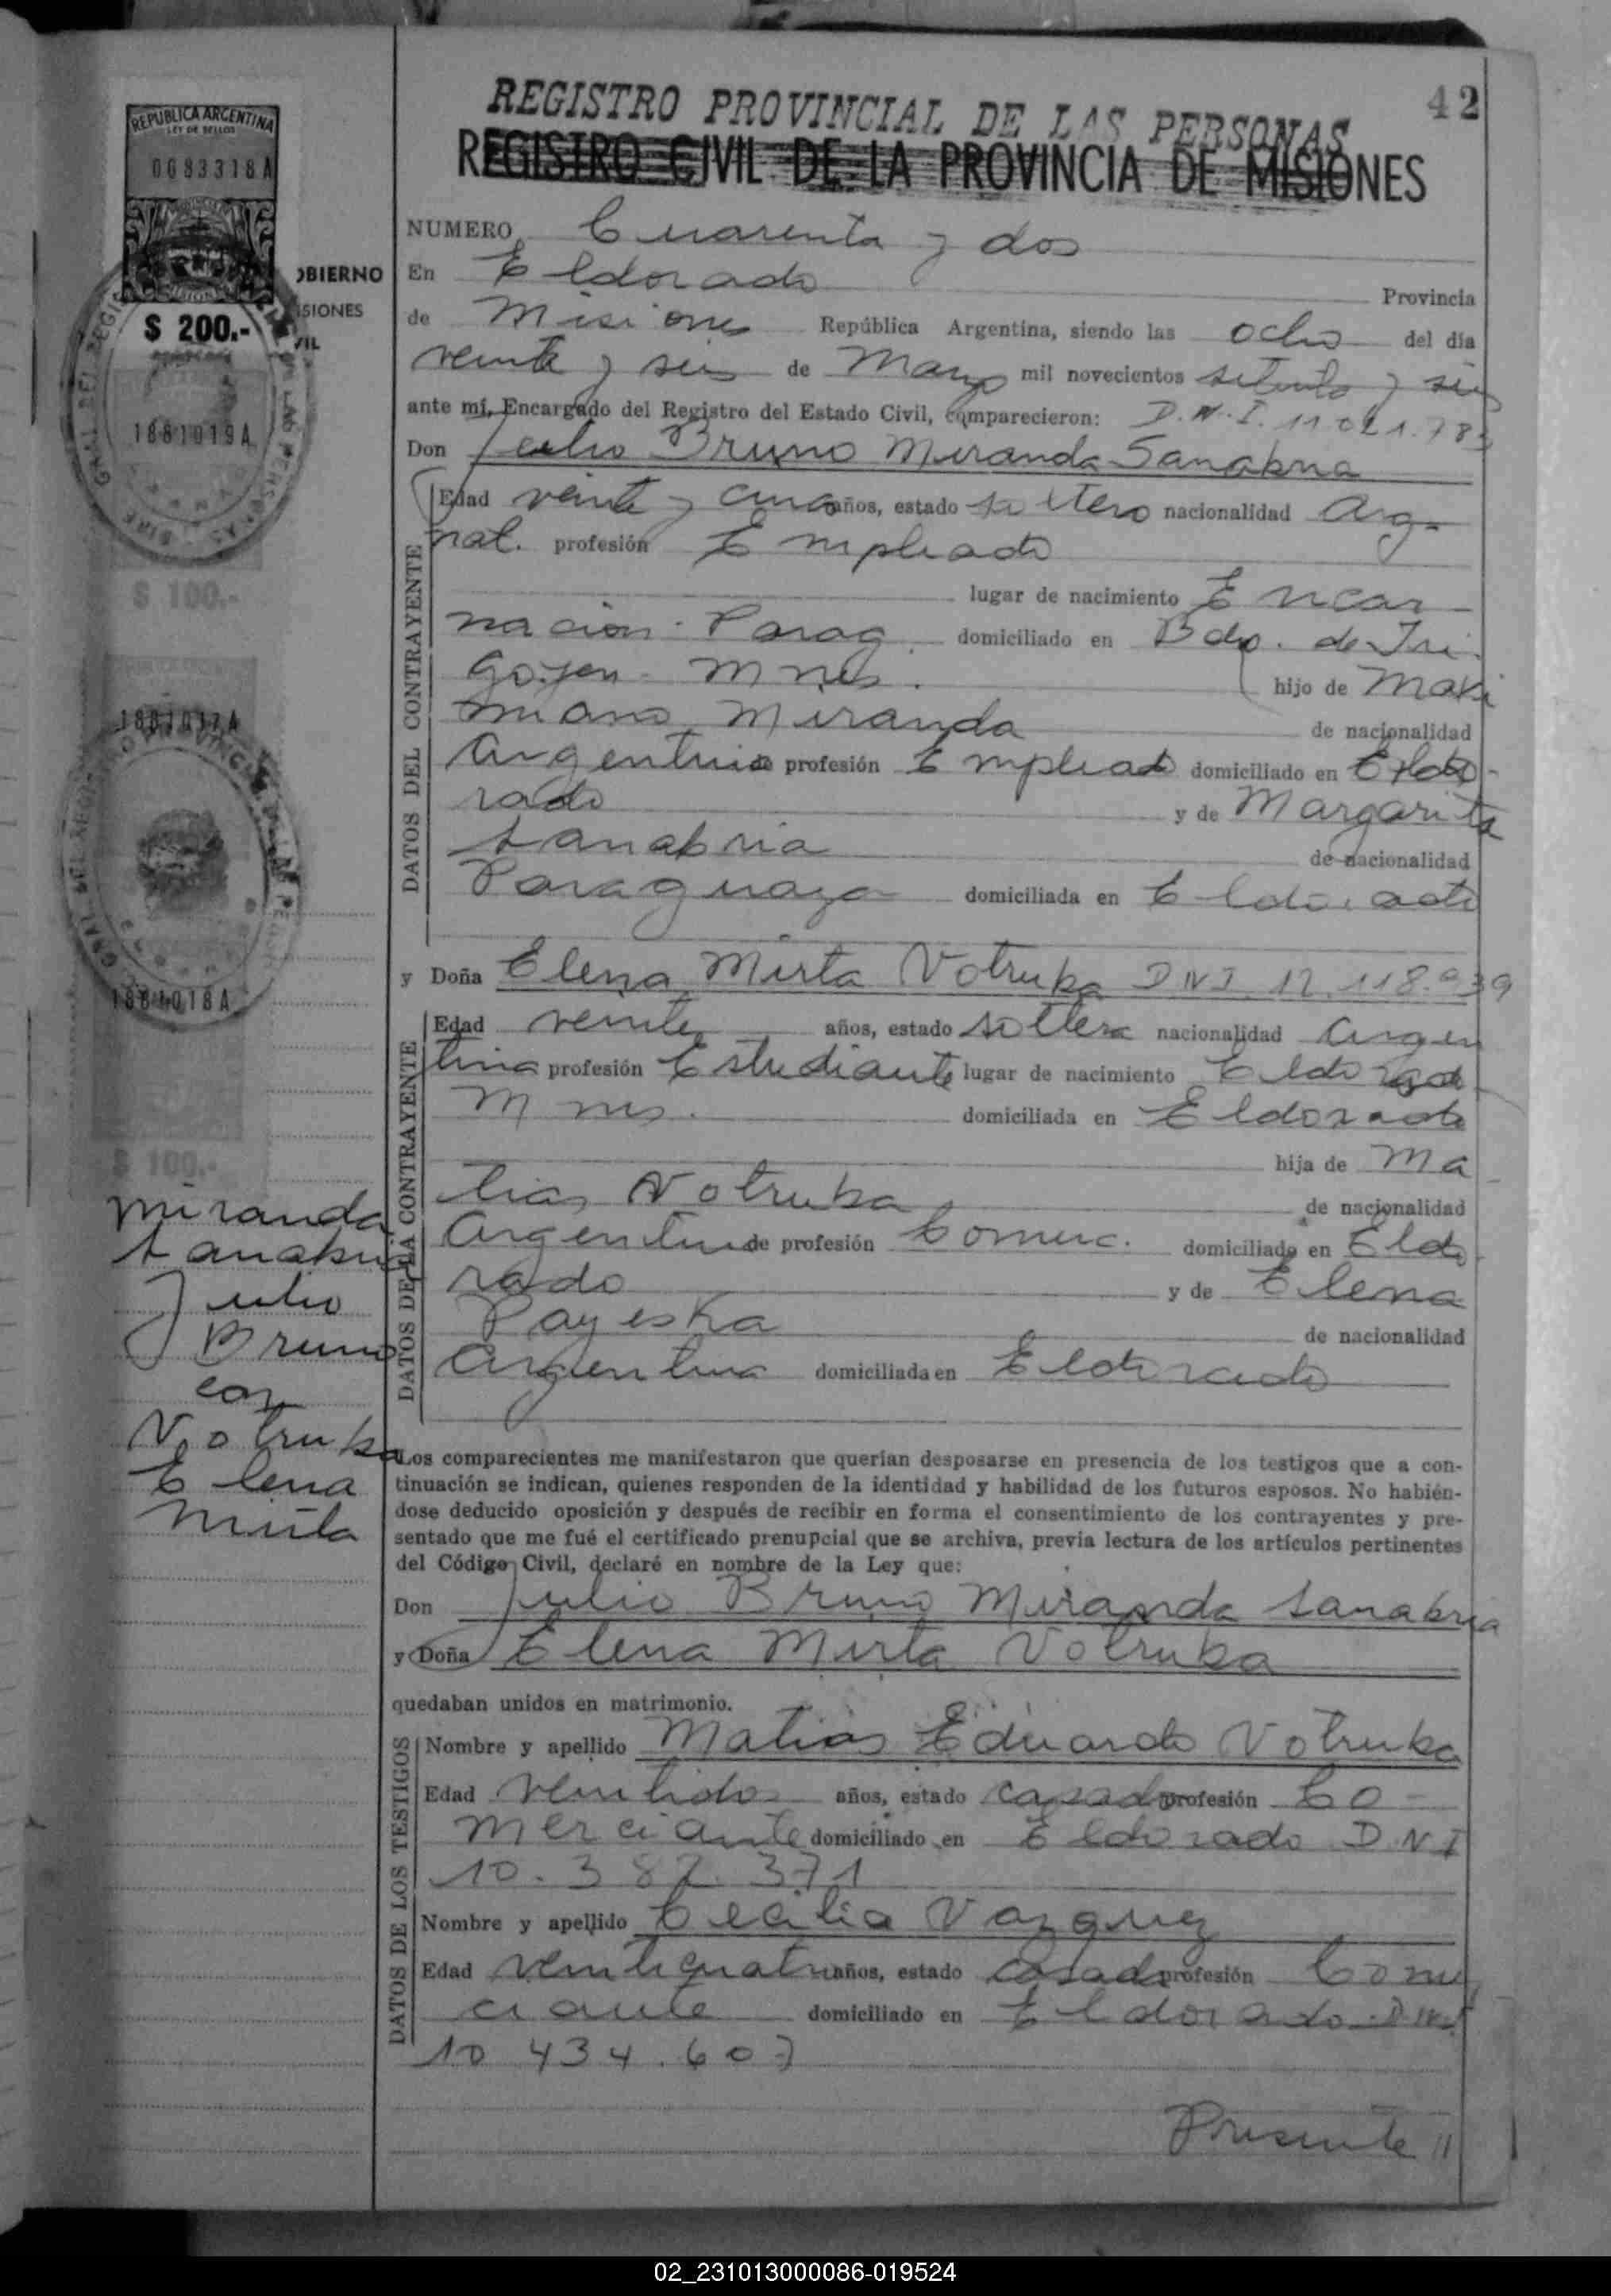 42
REGISTRO PROVINCIAL DE LAS PERSONAS
REGISTRO CIVIL DE LA PROVINCIA DE MISIONES
REPUBLICA ARGENTINA
LEY DE SELLOS
0683318A
$ 200.-
OBIERNO
ISIONES
VIL
1881019A
$ 100.-
1881017A
1881018A
$ 100.-
Miranda
Sanabria
Julio
Bruno
con
Votruba
Elena
Mirta
NUMERO Cuarenta y dos
En Eldorado Provincia
de Misiones República Argentina, siendo las ocho del día
veinte y seis de Marzo mil novecientos setenta y seis
ante mí, Encargado del Registro del Estado Civil, comparecieron: D.N.I. 11.021.783
Don Julio Bruno Miranda Sanabria
Edad veinte y cinco años, estado soltero nacionalidad Arg.
nat. profesión Empleado
lugar de nacimiento Encar
nación - Parag. domiciliado en Bdo. de Iri
goyen - Mnes. hijo de Maxi
miano Miranda de nacionalidad
Argentina de profesión Empleado domiciliado en Eldo-
rado y de Margarita
Sanabria de nacionalidad
Paraguaya domiciliada en Eldorado
y Doña Elena Mirta Votruba DNI. 12.118.039
Edad veinte años, estado soltera nacionalidad Argen
tina profesión Estudiante lugar de nacimiento Eldorado
Mnes. domiciliada en Eldorado
hija de Ma
tias Votruba de nacionalidad
Argentina de profesión Comerc. domiciliado en Eldo-
rado y de Elena
Payeska de nacionalidad
Argentina domiciliada en Eldorado
DATOS DEL CONTRAYENTE
DATOS DE LA CONTRAYENTE
Los comparecientes me manifestaron que querían desposarse en presencia de los testigos que a con-
tinuación se indican, quienes responden de la identidad y habilidad de los futuros esposos. No habién-
dose deducido oposición y después de recibir en forma el consentimiento de los contrayentes y pre-
sentado que me fué el certificado prenupcial que se archiva, previa lectura de los artículos pertinentes
del Código Civil, declaré en nombre de la Ley que:
Don Julio Bruno Miranda Sanabria
y Doña Elena Mirta Votruba
quedaban unidos en matrimonio.
DATOS DE LOS TESTIGOS
Nombre y apellido Matias Eduardo Votruba
Edad veintidos años, estado casado profesión Co-
merciante domiciliado en Eldorado D.N.I
10.382.371
Nombre y apellido Cecilia Vazquez
Edad veinticuatro años, estado casada profesión Comer
ciante domiciliado en Eldorado. D.N.I
10 434.607
Presente //
02_231013000086-019524